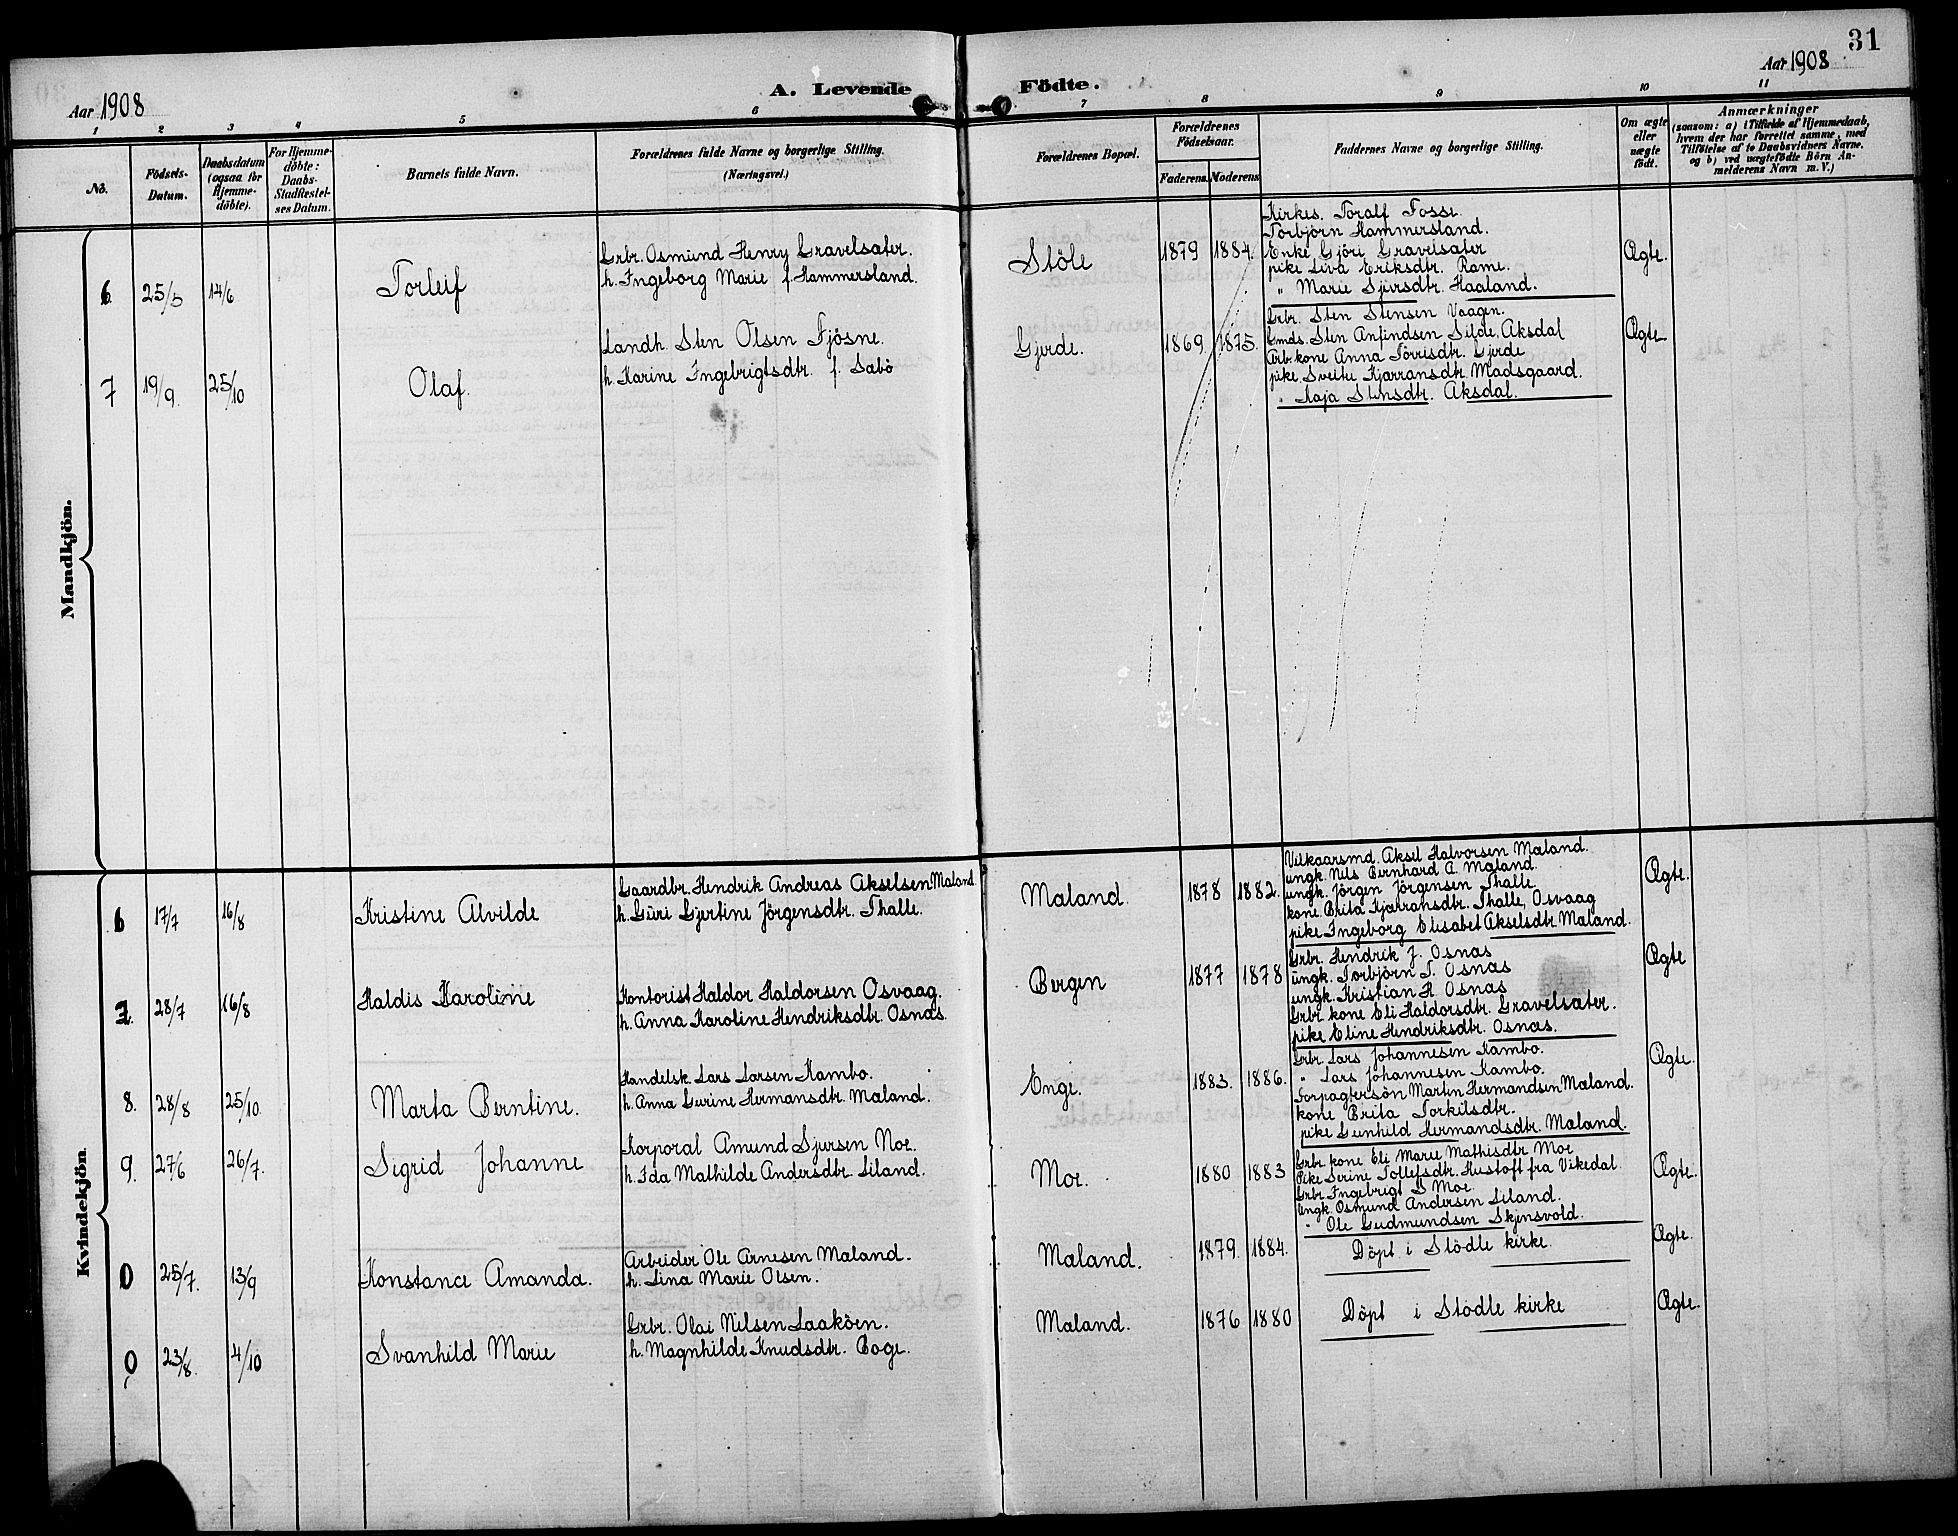 31
Aar 1908
A. Levende Födte.
Aar 1908
1 2 3 4 5 6 7 8 9 10 11
No.
Födsels-
Datum.
Daabsdatum
(ogsaa for
Hjemme-
döbte).
For Hjemme-
döbte:
Daabs-
Stadfæstel-
ses Datum.
Barnets fulde Navn.
Forældrenes fulde Navne og borgerlige Stilling.
(Næringsvei.)
Forældrenes Bopæl.
Forældrenes
Födselsaar.
Faderens. Moderens.
Faddernes Navne og borgerlige Stilling.
Om ægte
eller
uægte
födt.
Anmærkninger
(saasom: a) i Tilfælde af Hjemmedaab,
hvem der har forrettet samme, med
Tilföielse af to Daabsvidners Navne,
og b) ved uægtefödte Börn An-
melderens Navn m. V.)
Mandkjön.
6 25/5 14/6 Torleif
Grbr. Osmund Henry Gravelsæter.
h. Ingeborg Marie f. Hammersland.
Stöle 1879 1884.
Kirkes. Toralf Fosse.
Torbjörn Hammersland.
Enke Gjöri Gravelsæter
pike Siva Eriksdtr. Rame.
" Marie Sjursdtr. Haaland.
Ægte.
7 19/9. 25/10 Olaf.
Landh. Sten Olsen Fjösne.
h. Karine Ingebrigtsdtr. f. Sæbö
Gjerde. 1869 1875.
Grbr. Sten Stensen Vaagen.
Gmds. Sten Anfindsen Silde, Aksdal
Arb. kone Anna Torrisdtr. Gjerde
pike Sveite Kjærransdtr. Madsgaard.
" Kaja Stensdtr. Aksdal.
Ægte
Kvindekjön.
6 17/7 16/8 Kristine Alvilde
Gaardbr. Hendrik Andreas Akselsen Mæland.
h. Guri Gjertine Jörgensdtr. Thalle.
Mæland 1878 1882.
Vilkaarsmd. Aksel Halvorsen Mæland.
ungk. Nils Bernhard A. Mæland.
ungk. Jörgen Jörgensen Thalle
kone Brita Kjærransdtr. Thalle, Osvaag
pike Ingeborg Elisabet Akselsdtr. Mæland.
Ægte.
7. 28/7 16/8 Haldis Karoline
Kontorist Haldor Haldorsen Osvaag.
h. Anna Karoline Hendriksdtr. Osnæs.
Bergen 1877 1878
Grbr. Hendrik J. Osnæs
ungk. Torbjörn T. Osnæs
ungk. Kristian H. Osnæs
Grbr. kone Eli Haldorsdtr. Gravelsæter.
pike Eline Hendriksdtr. Osnæs.
Ægte
8. 28/8 25/10. Marta Berntine.
Handelsk. Lars Larsen Kambo.
h. Anna Gurine Hermansdtr. Mæland.
Enge. 1883. 1886.
Grbr. Lars Johannesen Kambo.
" Lars Johannesen Kambo.
Forpagtersön Martin Hermandsen Mæland.
kone Brita Torkilsdtr.
pike Gunhild Hermandsdtr. Mæland.
Ægte.
9. 27/6 26/7. Sigrid Johanne
Korporal Amund Sjursen Moe.
h. Ida Mathilde Andersdtr. Liland.
Moe. 1880 1883
Grbr. kone Eli Marie Mathisdtr Moe
Pike Serine Tollefsdtr. Hustoft fra Vikedal.
Grbr. Ingebrigt S. Moe.
Ungk. Osmund Andersen Liland.
" Ole Gudmundsen Skjensvold.
Ægte.
0 25/7. 13/9 Konstance Amanda.
Arbeider Ole Arnesen Mæland.
h. Lina Marie Olsen.
Mæland. 1879. 1884.
Döpt i Stödle kirke.
Ægte.
0 23/8. 4/10 Svanhild Marie
Grbr. Olai Nilsen Laaköen.
h. Magnhilde Knudsdtr. Boge.
Mæland. 1876 1880
Döpt i Stödle kirke
Ægte.